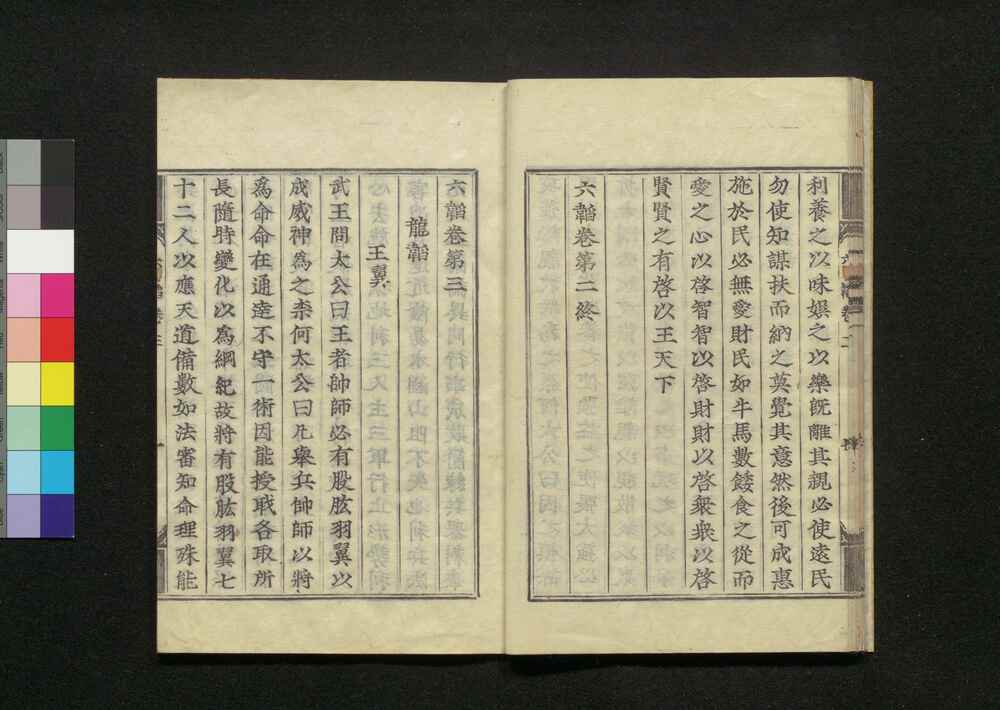 利養之以味娯之以樂既離其親必使遠民
勿使知謀扶而納之莫覺其意然後可成惠
施於民必無愛財民如牛馬數餧食之從而
愛之心以啓智智以啓財財以啓衆衆以啓
賢賢之有啓以王天下
六韜卷第二終
六韜卷第三
龍韜
王翼
武王問太公曰王者帥師必有股肱羽翼以
成威神爲之柰何太公曰凡舉兵帥師以將
爲命命在通達不守一術因能授軄各取所
長隨時變化以爲綱紀故將有股肱羽翼七
十二人以應天道備數如法審知命理殊能